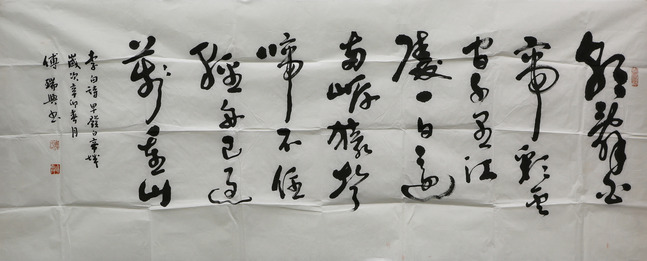 朝辭白
帝彩雲
間千里江
陵一日還
兩岸猿聲
啼不住
輕舟已過
萬重山
李白詩早發白帝城
歲次辛卯春月
傅瑞興書